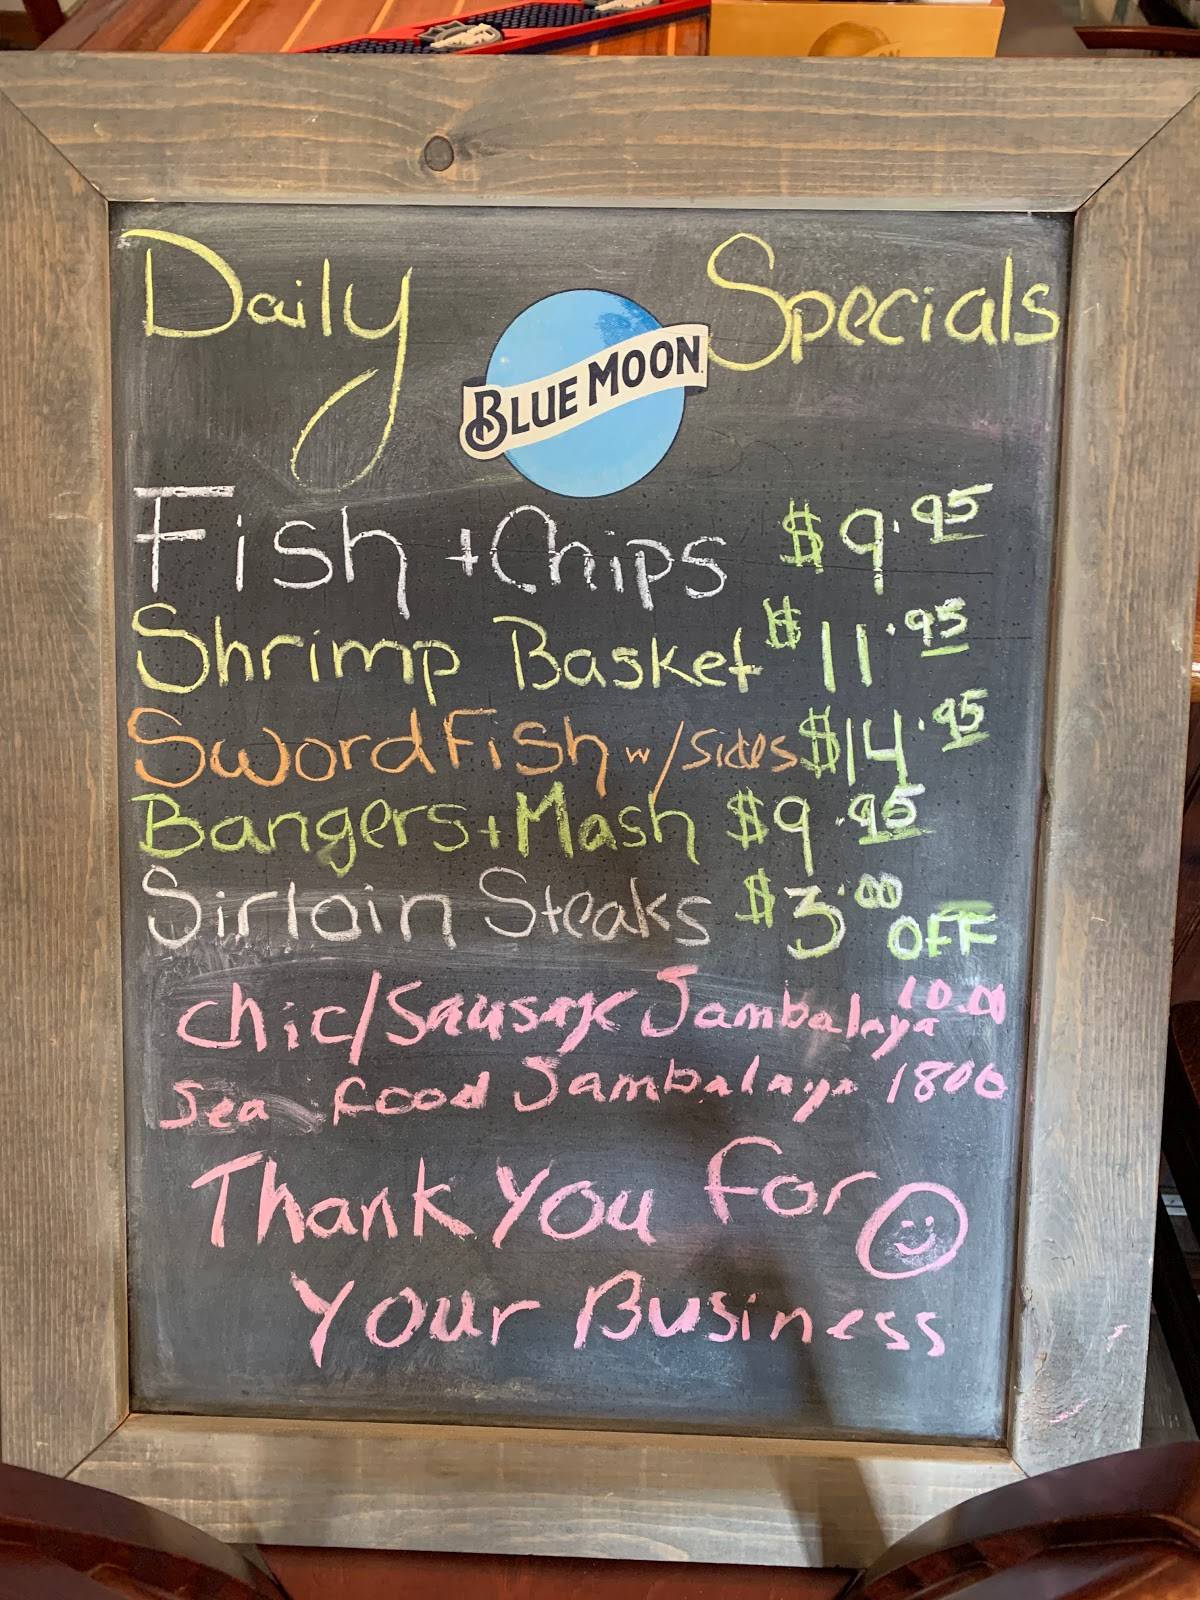 Daily Specials
BLUE MOON
Fish + Chips $9.95
Shrimp Basket $11.95
SwordFish w/sides $14.95
Bangers + Mash $9.95
Sirloin Steaks $3.00 OFF
Chic/Sausage Jambalaya 10.00
Sea food Jambalaya 1800
Thank You For
Your Business